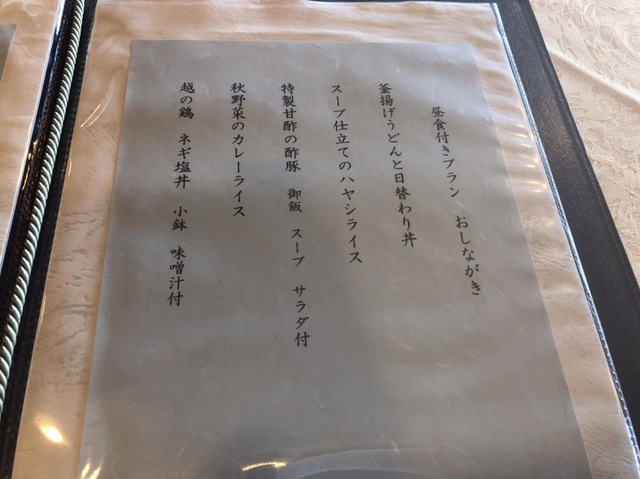 昼食付きプラン　おしながき
釜揚げうどんと日替わり丼
スープ仕立てのハヤシライス
特製甘酢の酢豚　御飯　スープ　サラダ付
秋野菜のカレーライス
越の鶏　ネギ塩丼　小鉢　味噌汁付